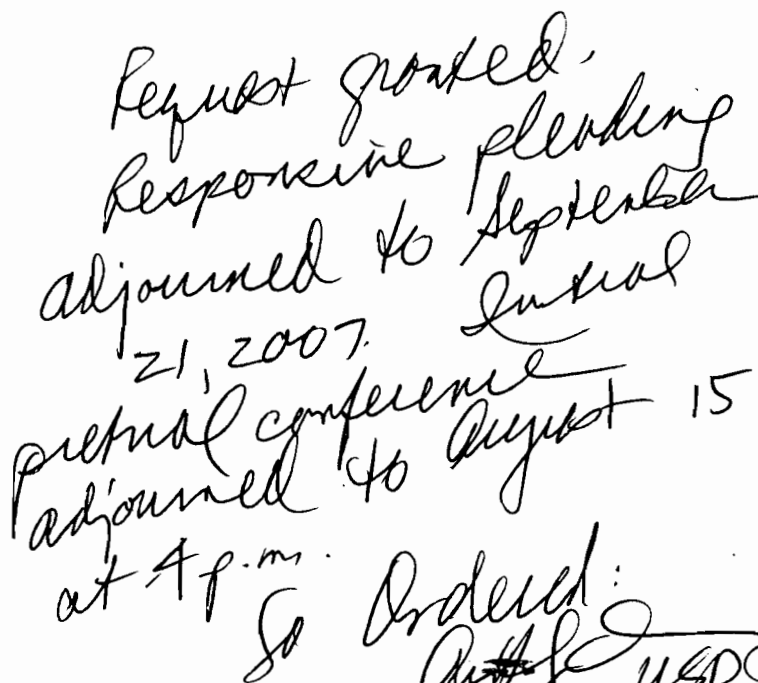 Request granted.
Responsive pleading
adjourned to September
21, 2007. Initial
pretrial conference
adjourned to August 15
at 4 p.m.
So Ordered:
USDC